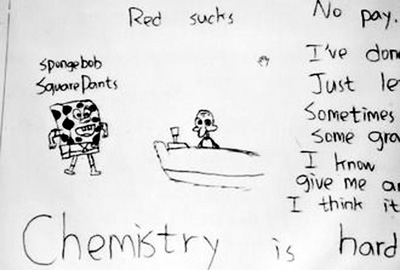 Red sucks
spongebob
SquarePants
No pay.
I've don
Just le
Sometimes
some gra
I know
give me a
I think it
Chemistry is hard